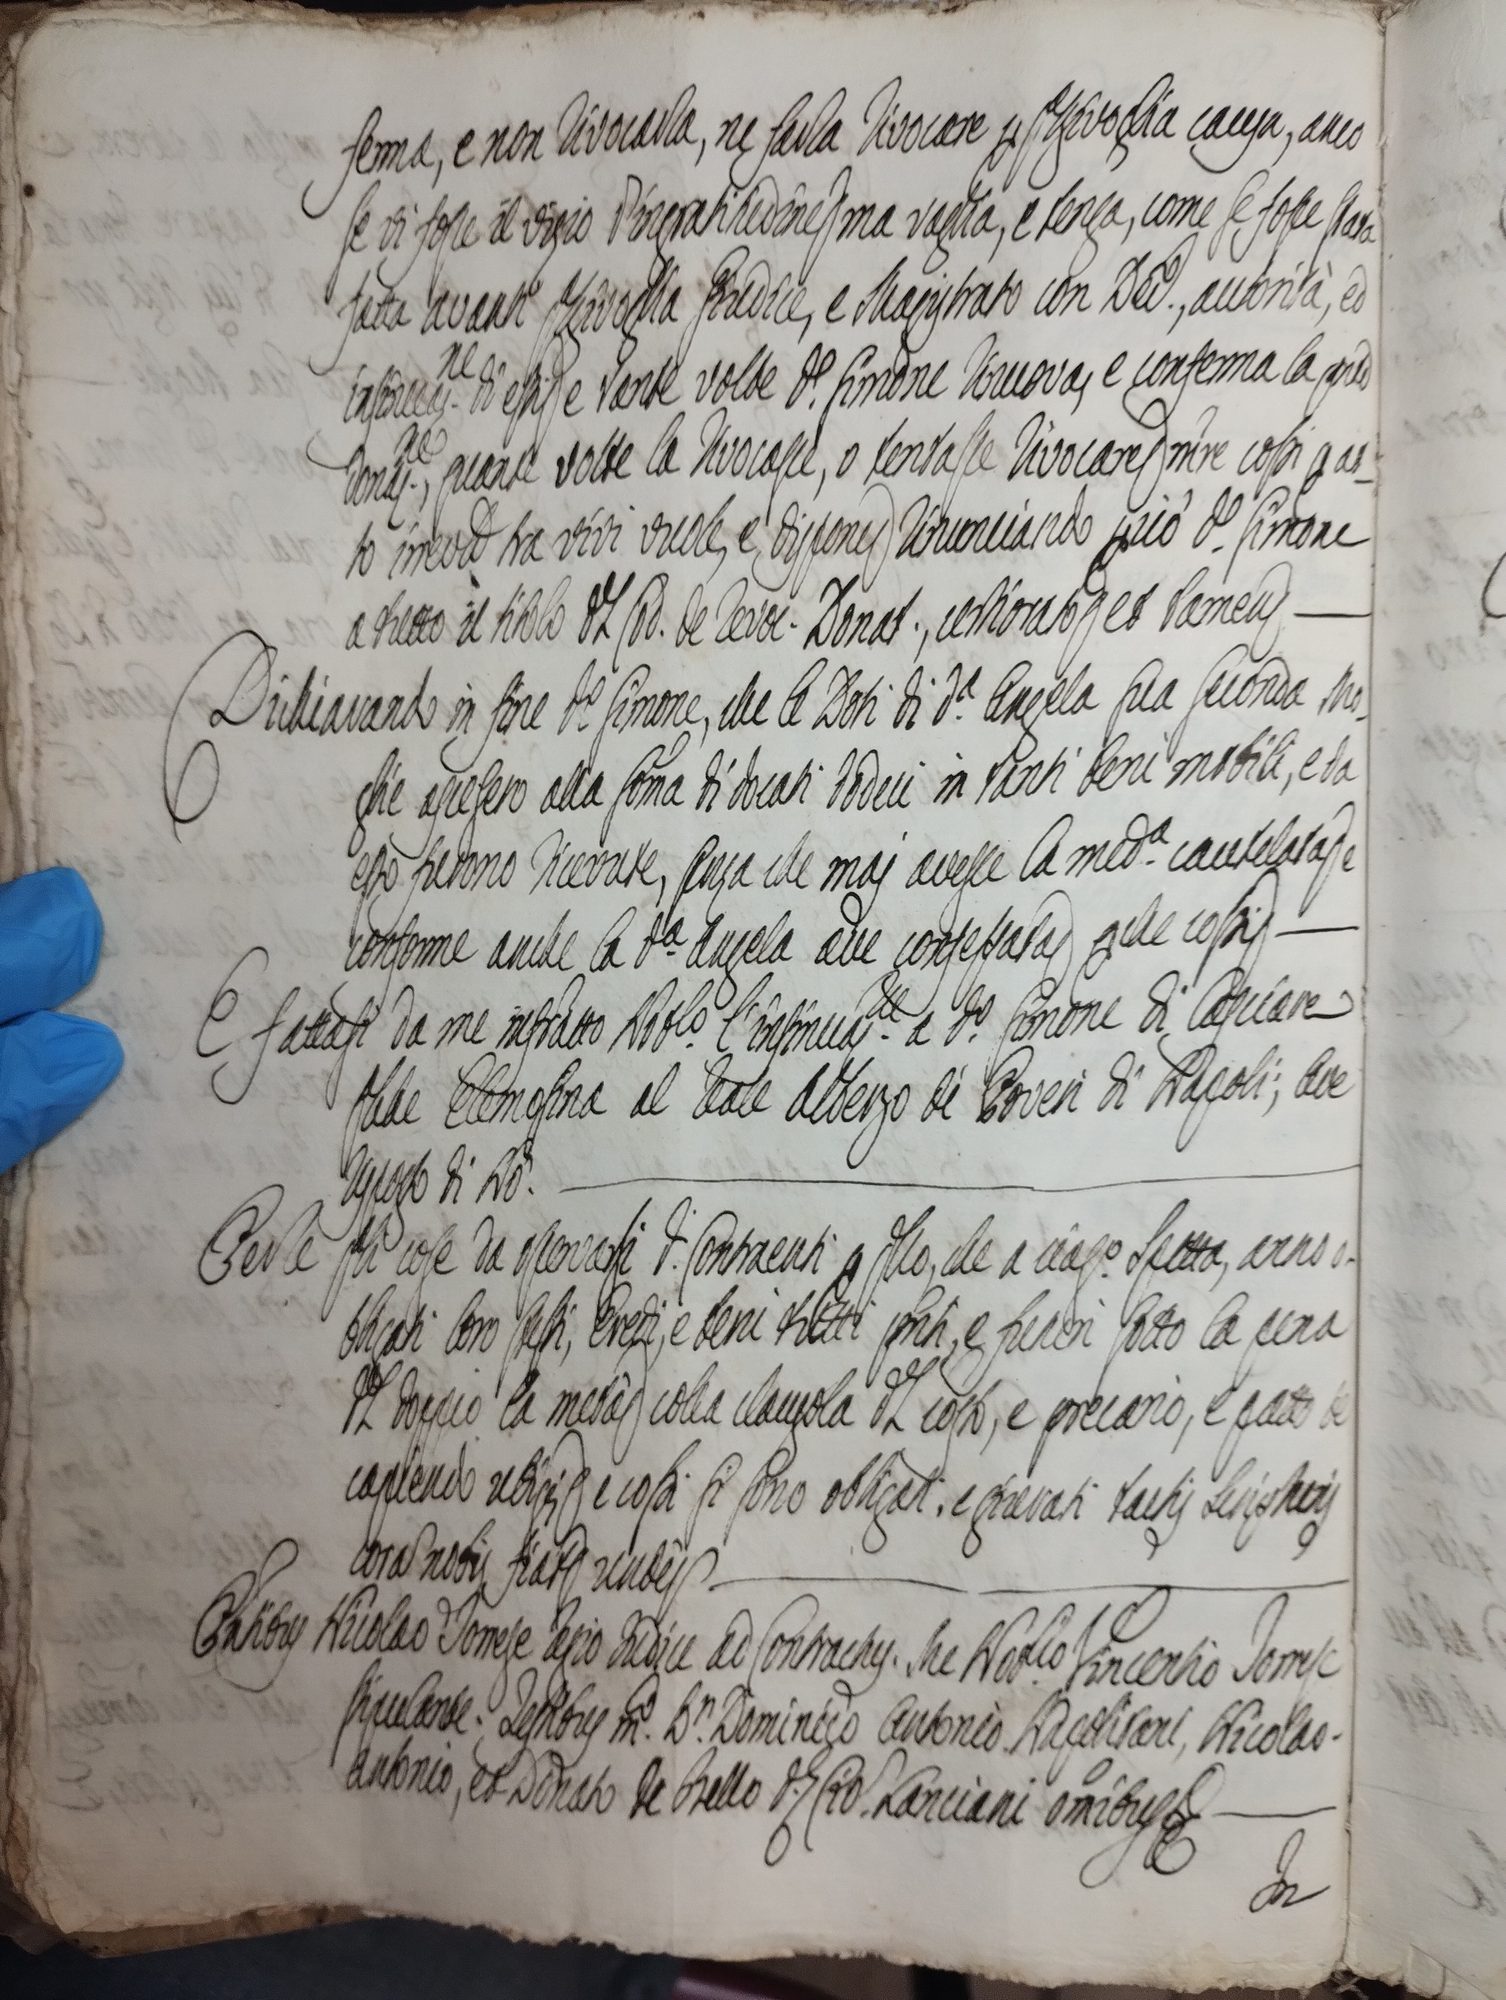 ferma, e non rivocarla, ne farla rivocare p qlsivoglia causa, anco
se vi fosse il vizio d'ingratitudine; ma vaglia, e tenga, come se fosse stata
fatta avanti qlsivoglia Giudice, e Magistrato con Dec.º, autorità, ed
insinuaz.ne di essi; e tante volte d.º Simone rinnova, e conferma la pred.
donaz.ne, quante volte la rivocasse, o tentasse rivocare; mre così p at-
to inrevd tra vivi vuole, e dispone; rinunciando pciò d.º Simone
a tutto il titolo dl Cod. de revoc. Donat., certiorato; et tamen
Dichiarando in fine d.º Simone, che le Doti di d.ª Angela sua seconda Mo-
glie ascesero alla soma di docati dodeci in tanti beni mobili, e da
esso furono ricevute, senza che mai avesse la med.ª cautelata; e
conforme anche la d.ª Angela ave confessata; pche così
E fattasi da me infratto Not.º l'insinuaz.ne a d.º Simone di lasciare
qlche Elemosina al Reale Albergo de Poveri di Napoli; ave
risposto di Nò.
Per le qli cose da osservarsi d. Contraenti p qllo, che a ciasc.º spetta, anno o-
bligati loro stessi, Eredi, e beni tutti pnti, e futuri sotto la pena
dl doppio la metà; colla clausola dl costo, e precario, e patto de
capiendo ubiq; e così si sono obligati, e giurati tactis scripturis
cora nobis fiat
Pntibus Nicolao Torrese regio Iudice ad Contractus. Me Not.º Vincentio Torrese
stipulante. Testibus m.º D.n Dominico Antonio Napolitani, Nicolao-
Antonio, et Donato de Bello Lanciani omibus
In